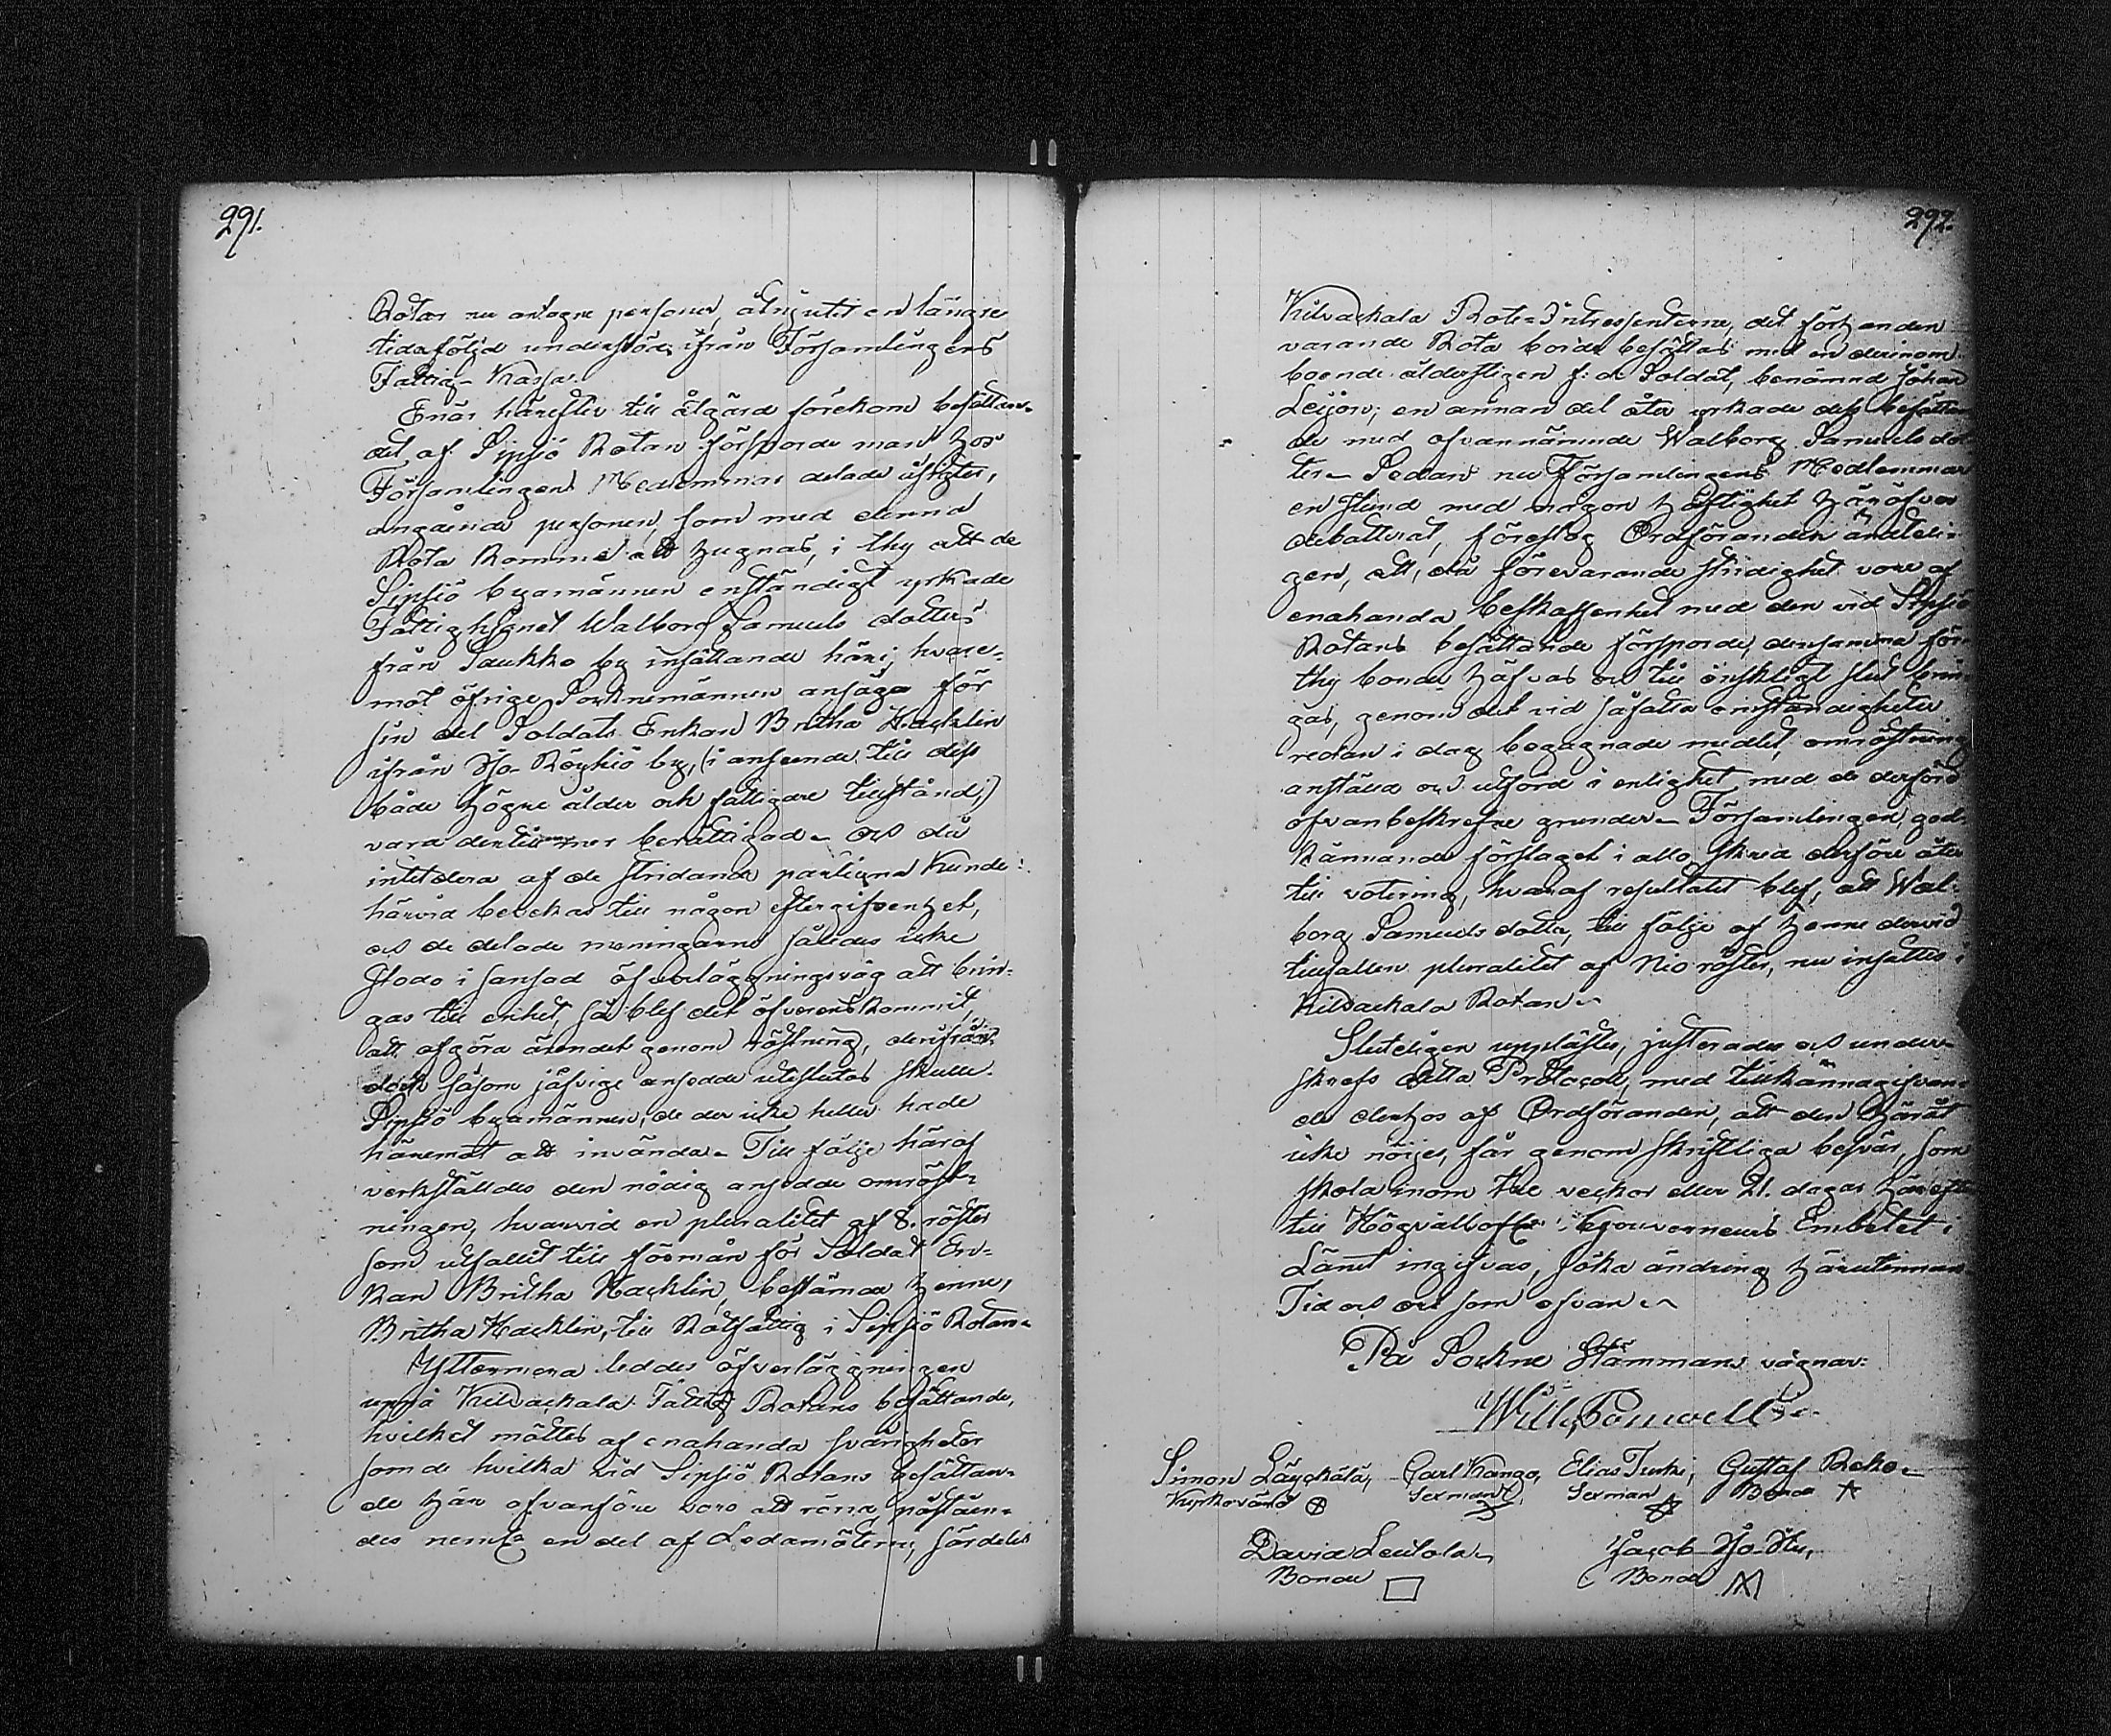 291.
Rotar nu antagne personer, åtnjutit en längre
tidsföljd understöd ifrån Församlingens
Fattig-Kassa.
Enär härefter till åtgärd förekom besättan-
det af Sipsiö Rotan försporde man hos
Församlingens Medlemmar delade åsigter,
angående personen, som med denna
Rota komme att hugnas, i thy att de
Sipsiö byamännen enständigt yrkade
Fattighjonet Walborg Samuels dotters
från Saukko by insättande häri; hvare-
mot öfrige Socknemännen ansågo för
sin del Soldats Enkan Britha Hacklin
ifrån Yso-Röyhiö by, (i anseende till dess
både högre ålder och fattigare tillstånd;)
vara dertill mer berättigad. Och då
intetdera af de stridande partierna kunde
härvid bevekas till någon eftergifvenhet,
och de delade meningarne således icke
stodo i sansad öfverläggningsväg att brin-
gas till enhet, så blef det öfverenskommit,
att afgöra ärendet genom röstning, derifrån
dock såsom jäfvige ansedde uteslutas skulle
Sipsiö byamännen, de der icke heller hade
häremot att invända. Till följe häraf
verkställdes den nödig ansedde omröst-
ningen, hvarvid en pluralitet af 8. röster
som utfallit till förmån för Soldat En-
kan Britha Hacklin, bestämde henne,
Britha Hacklin, till Rotfattig i Sipsiö Rotan.
Yttermera leddes öfverläggningen
uppå Kilvackala Fattig Rotans besättande,
hvilket möttes af enahanda svårigheter
som de hvilka vid Sipsiö Rotans besättan-
de här ofvanföre voro att röna, påståen-
des neml. en del af Ledamöterne, särdeles
292.
Kilvackala Rote-Intressenterne, det förhanden
varande Rota borde besättas med en derinom
boende ålderstigen f: d: Soldat, benämnd Johan
Leijon; en annan del åter yrkade dess besättan
de med ofvannämnde Walborg Samuels dot
ter. Sedan nu Församlingens Medlemmar
en stund med någon häftighet häröfver
debatterat, föreslog Ordföranden ändteli-
gen, att, då förevarande stridighet vore af
enahanda beskaffenhet med den vid Sipsiö
Rotans besättande försporde, densamma för
thy borde häfvas och till önskligt slut brin
gas, genom det vid såfatta omständigheter
redan i dag begagnade medlet, omröstning
anställd och utförd i enlighet med de derföre
ofvanbeskrefne grunder. Församlingen, god-
kännande förslaget i allo, skred derföre åter
till votering, hvaraf resultatet blef, att Wal-
borg Samuels dotter, till följe af henne dervid
tillfallen pluralitet af Nio röster, nu insattes i
Kilvackala Rotan.
Sluteligen upplästes, justerades och under-
skrefs detta Protocoll, med tillkännagifvan-
de derhos af Ordföranden, att den häråt
icke nöijes, får genom skriftliga besvär, som
skola inom tre veckor eller 21. dagar härefter
till Högvälb Gouverneurs Embetet i
Länet ingifvas, söka ändring härutinnan.
Tid och ort som ofvan.
På Sockne Stämmans vägnar:
Simon Läyckälä, Carl Kango, Elias Turki, Gustaf Reko.
Kyrkovärd Sexman Sexman Bonde
David Leutola Jacob Yso-
Bonde Bonde